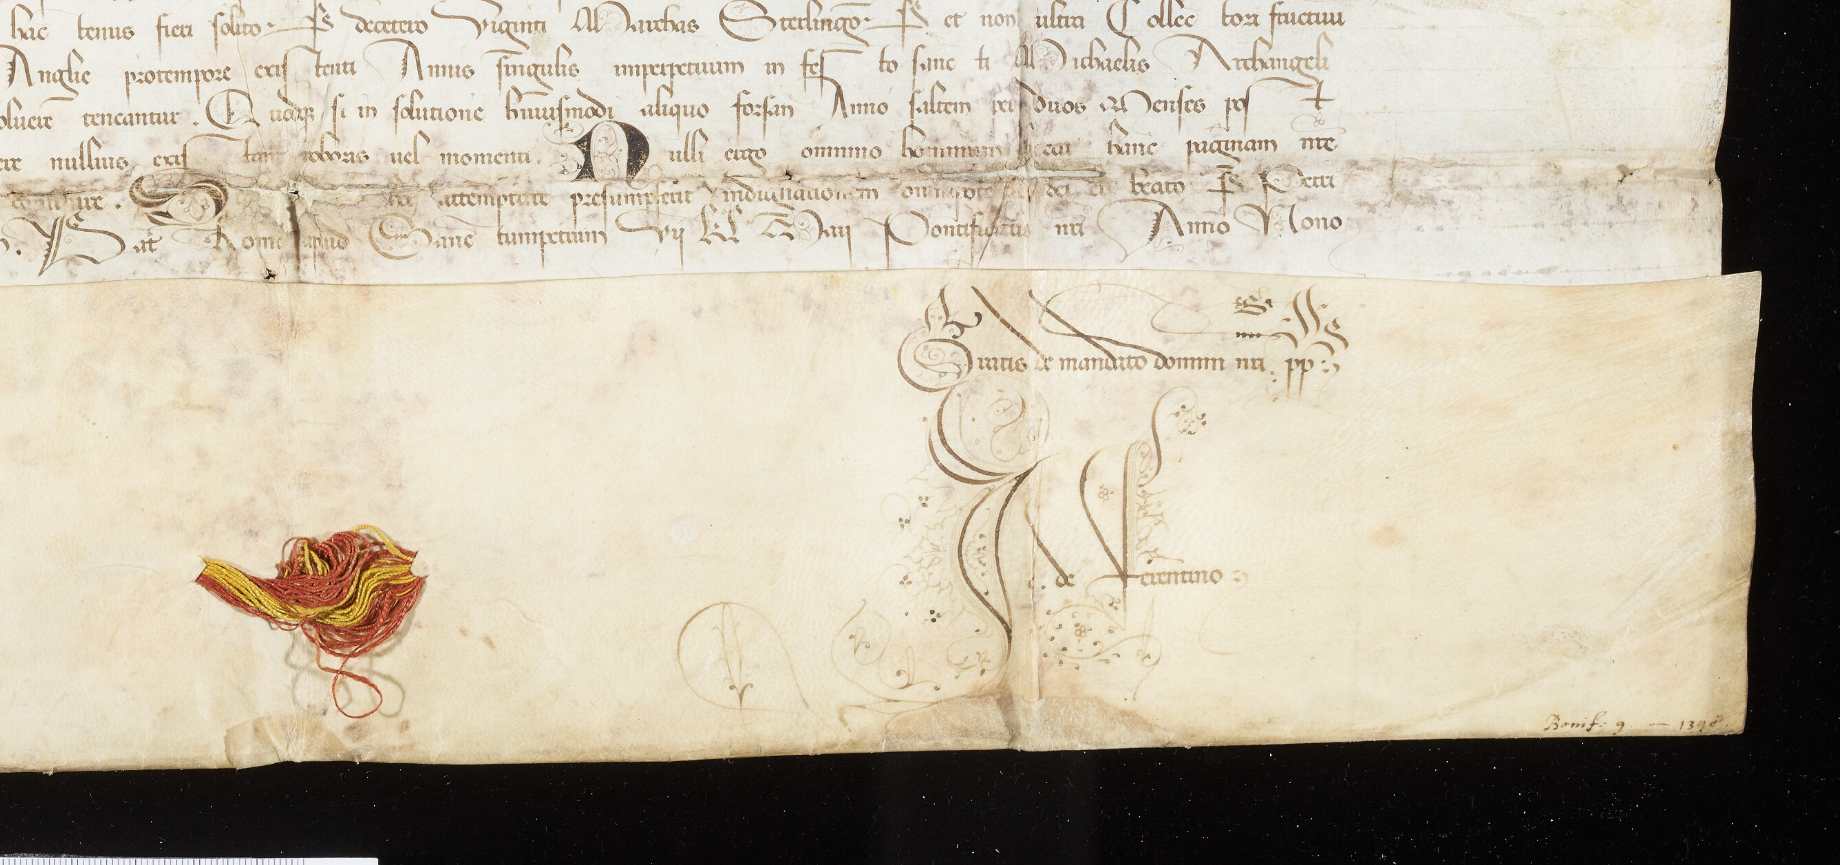 hac tenus fieri solito. Et decetero Viginti Marchas Sterlingoꝝ. Et et non ultra Collec tori fructuu
Anglie protempore exis tenti Annis singulis imperpetuum in fes to sanc ti Michaelis Archangeli
soluere teneantur. Quodqȝ si in solutione huiusmodi aliquo forsan Anno saltem per duos Menses pos t
nullius exis tant roboris uel momenti. Nulli ergo omnino hominum liceat hanc paginam nre
attemptare presumpserit indignationem omnipotentis dei et beatoꝝ Petri
Dat Rome apud Sanc tumpetrum Vij kl Maij Pontificatus nri Anno Nono
Gratis de mandato domini nri pp
de Ferentino
Bonif. 9. — 1398.